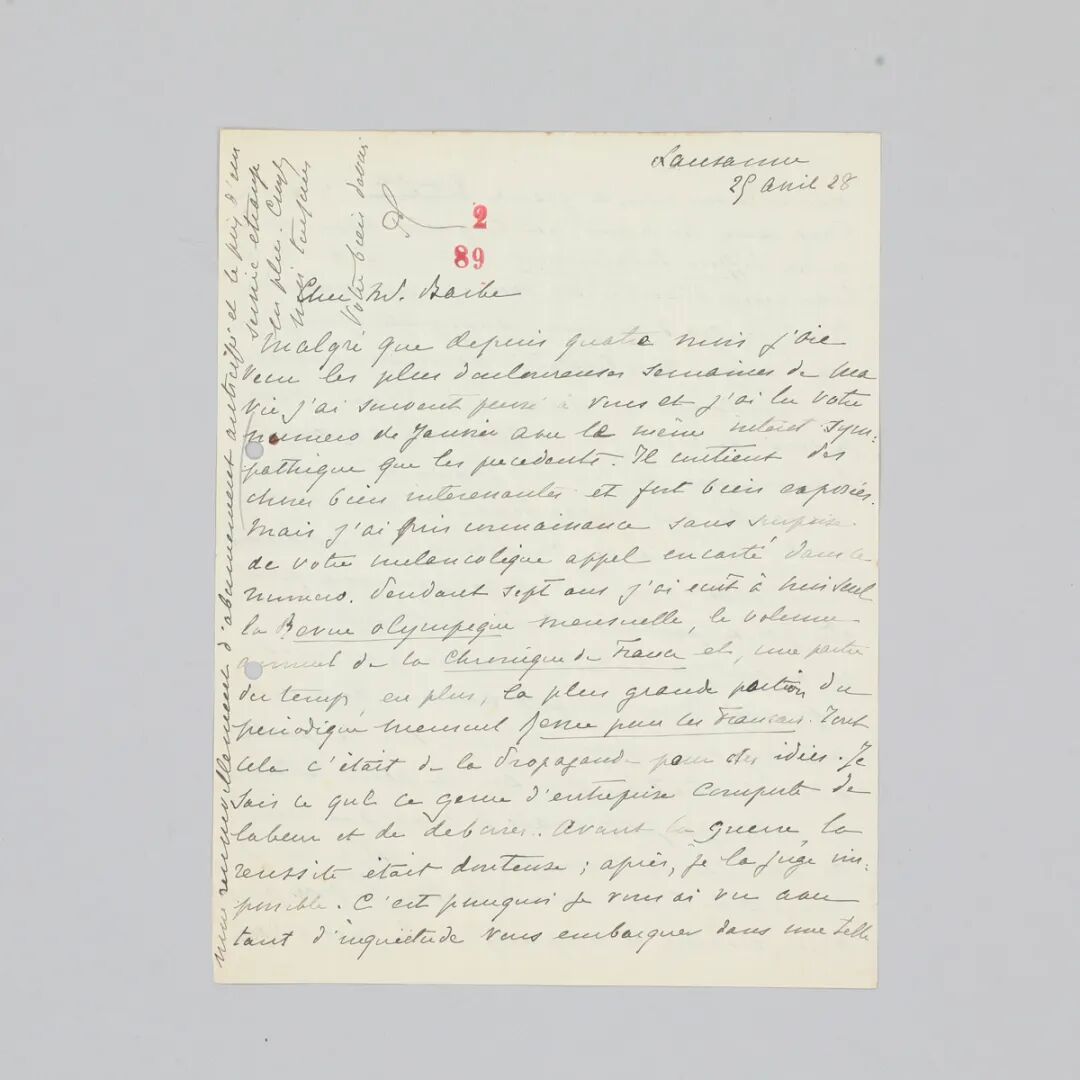 Lausanne
25 avril 28
2
89
Cher M. Barbe
Malgré que depuis quatre mois j'aie
vecu les plus douloureuses semaines de ma
vie j'ai souvent pensé à vous et j'ai lu votre
numero de Janvier avec le même interet sym-
pathique que les precedents. Il contient des
choses bien interessantes et fort bien exposées.
Mais j'ai pris connaissance sans surprise
de votre melancolique appel encarté dans ce
numero. Pendant sept ans j'ai ecrit à moi seul
la Revue olympique mensuelle, le volume
annuel de la Chronique de France et, une partie
du temps, en plus, la plus grande portion du
periodique mensuel pour les Francais. Tout
cela c'était de la Propagande pour des idées. Je
sais ce que ce genre d'entreprise comporte de
labeur et de deboires. Avant la guerre, la
reussite était douteuse ; après, je la juge im-
possible. C'est pourquoi je vous ai vu avec
tant d'inquietude vous embarquer dans une telle
mon renouvellement d'abonnement anticipé et le prix d'un
service etranger
en plus.
Votre bien dévoué